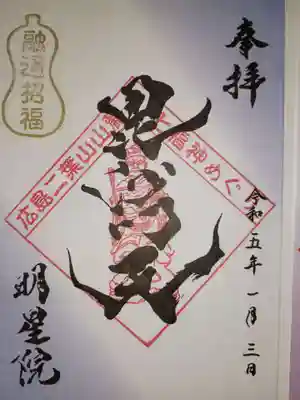 奉拝
融通招福
毘沙門天
広島二葉山山麓七福神めぐり
令和五年一月三日
明星院